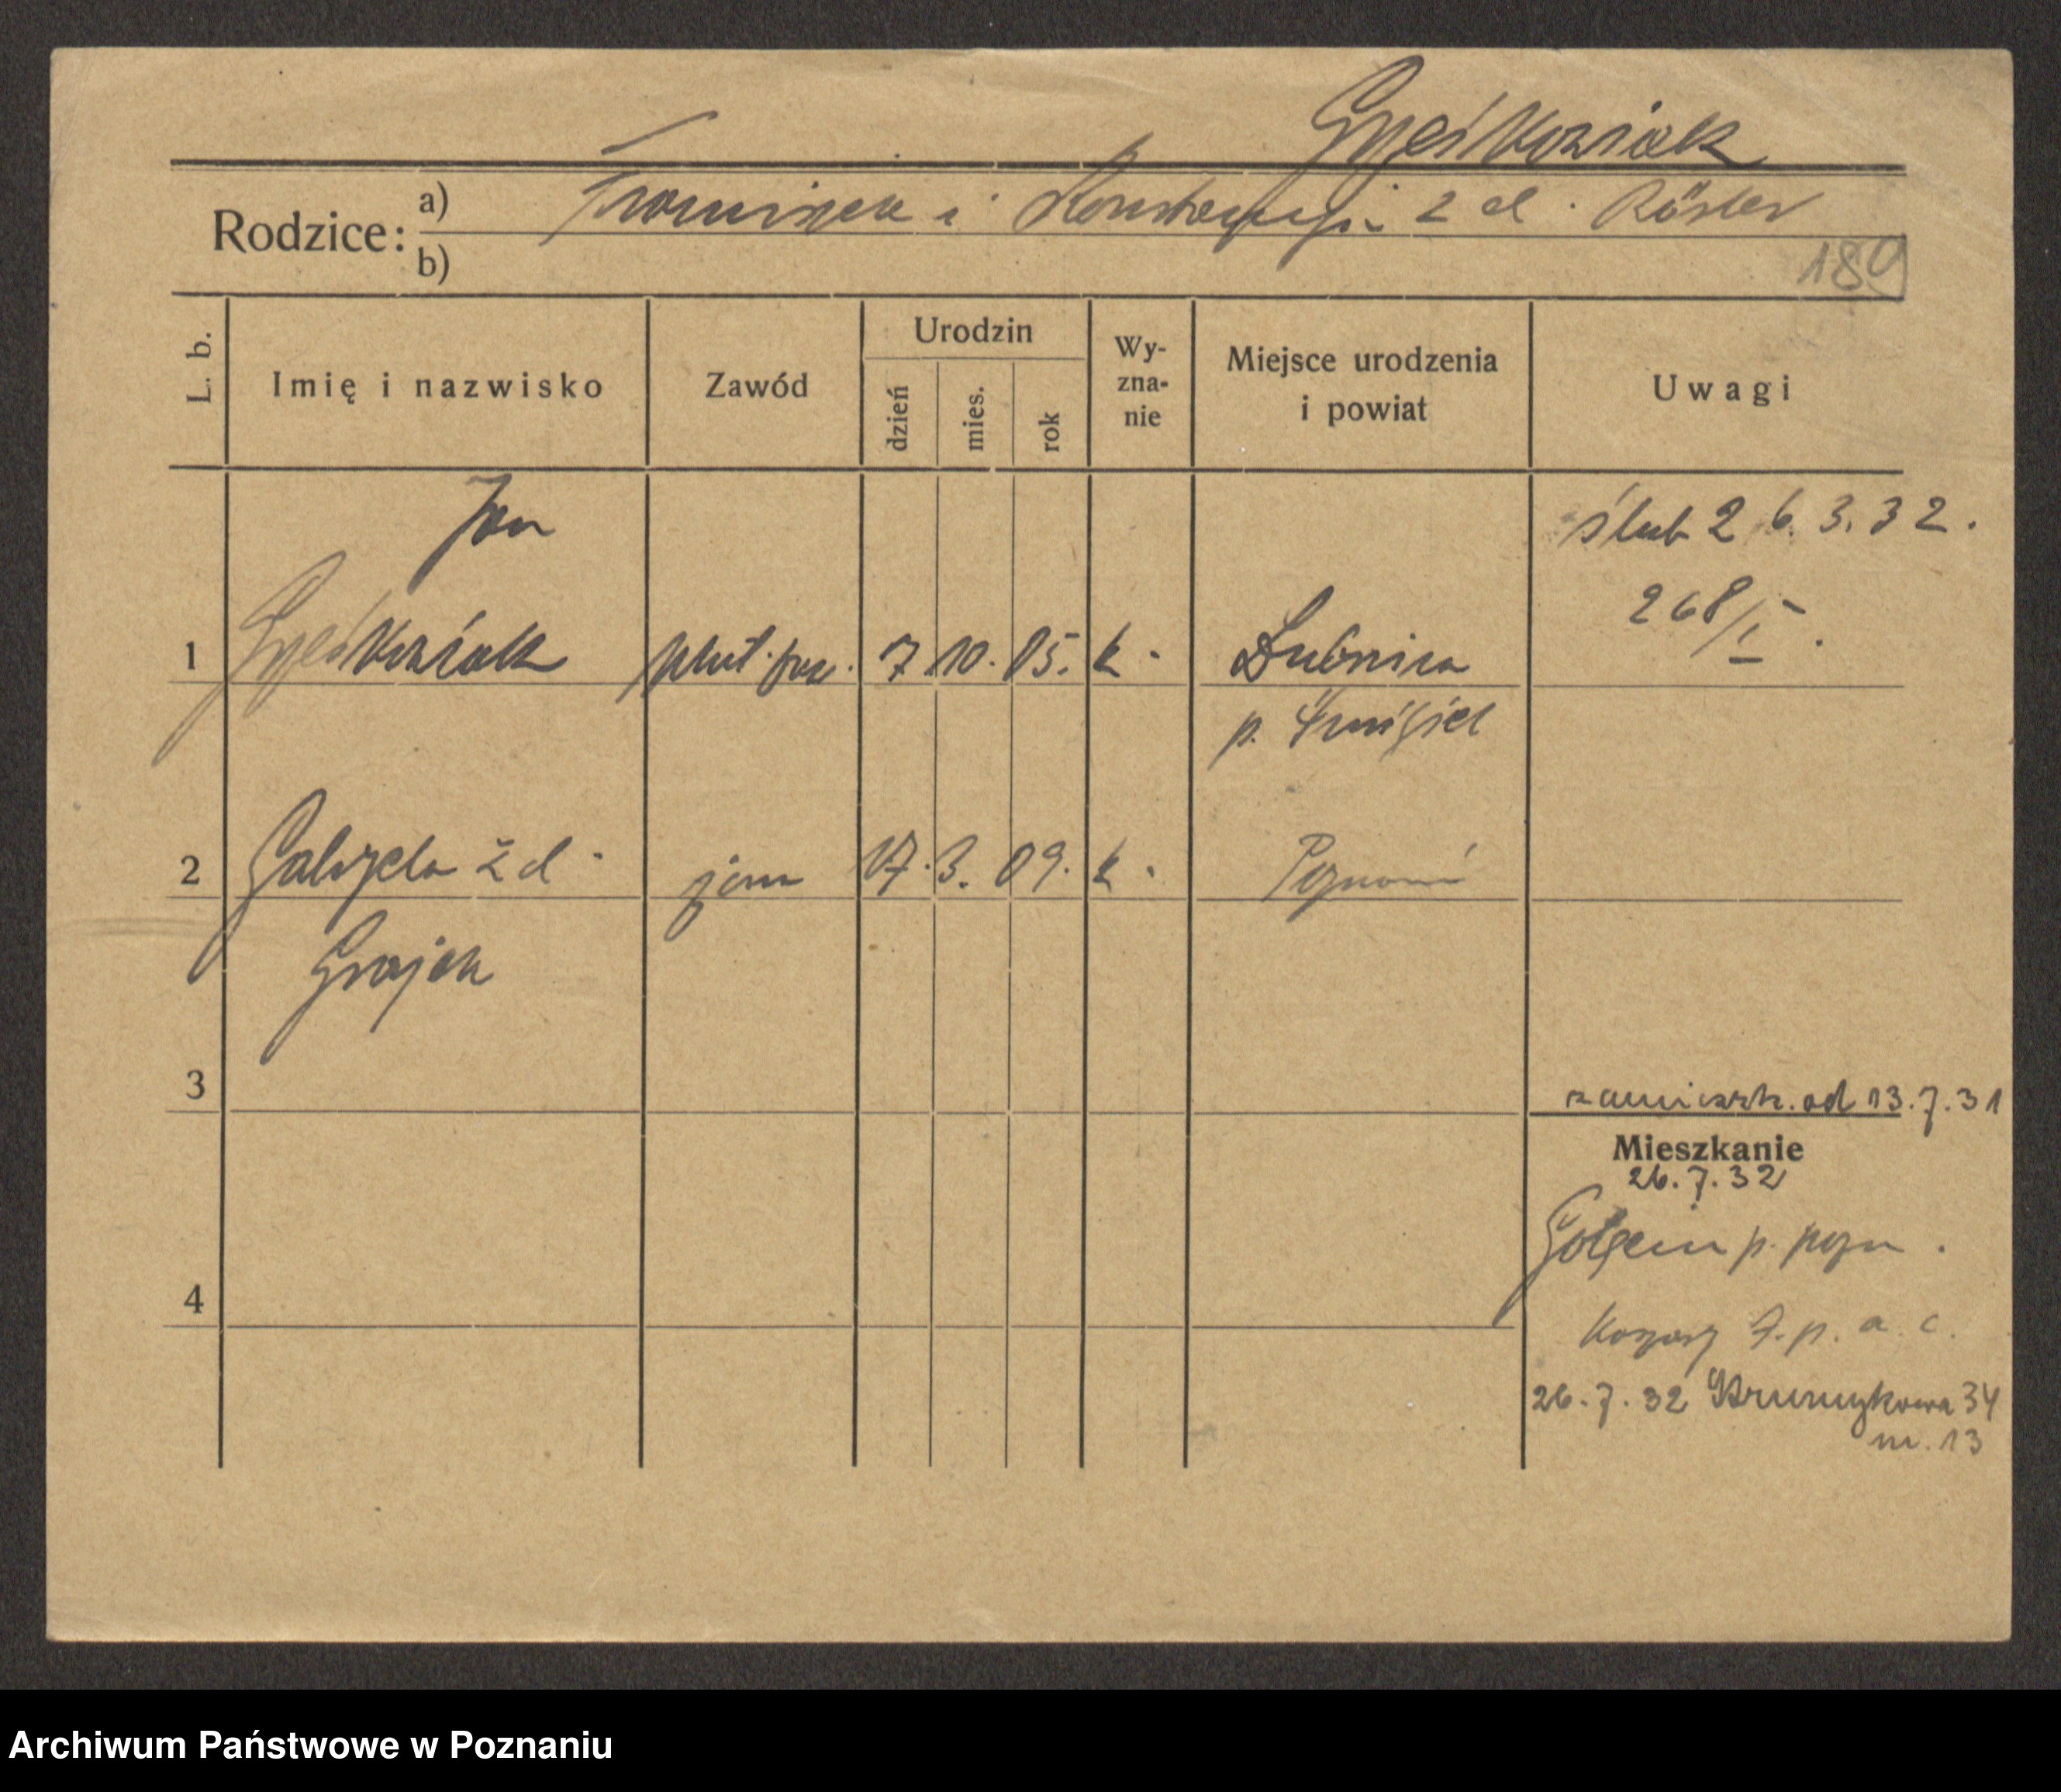 Grześkowiak
Rodzice:
a) Franciszek i Konstancja z d. Rösler
b)
189
L. b.
Imię i nazwisko
Zawód
Urodzin
dzień
mies.
rok
Wy-
zna-
nie
Miejsce urodzenia
i powiat
Uwagi
Jan
ślub 26.3.32.
268/I.
1 Grześkowiak plut. 7 10. 05. k. Dubnica
p. Śmigiel
2 Gabryela z d. 17. 3. 09. k. Poznań
Grajek
3
zamieszk. od 13.7.31
Mieszkanie
26.7.32
Golęcin p. pozn.
4
Koszary 7. p. a. c.
26.7.32 34
m. 13
Archiwum Państwowe w Poznaniu